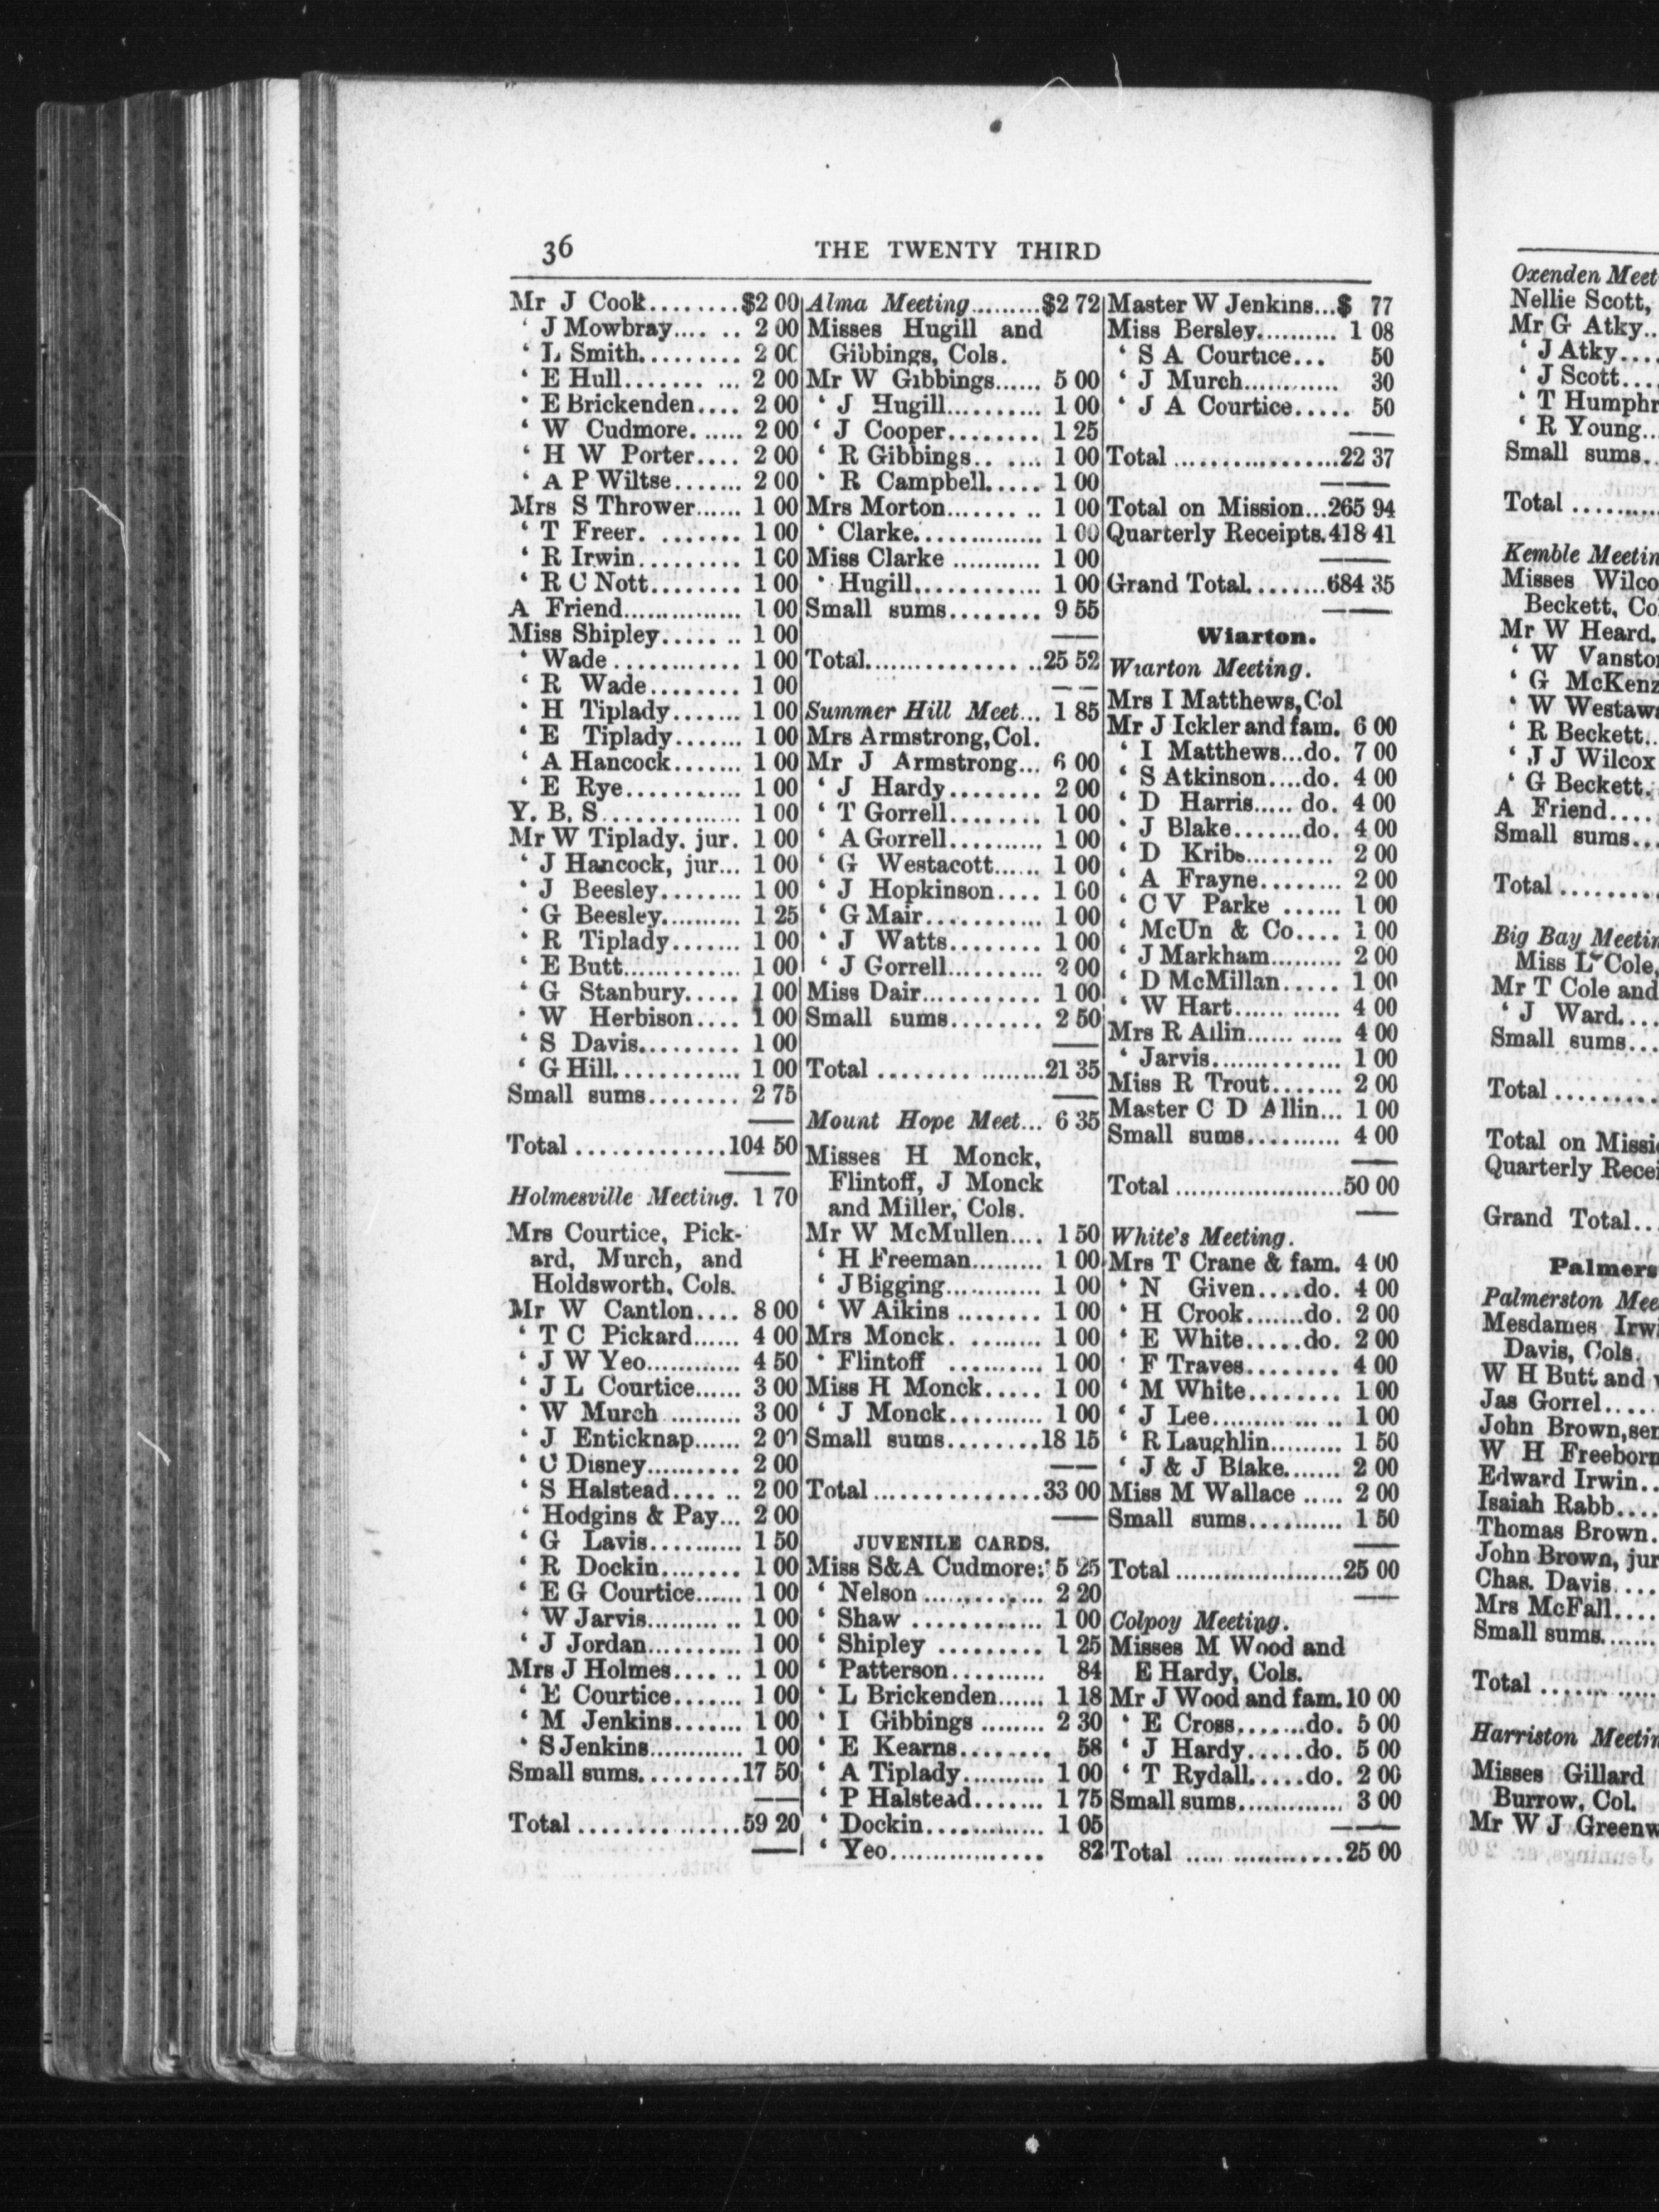 36 THE TWENTY THIRD
Mr J Cook........$2 00
‘ J Mowbray.... .. 2 00
‘ L Smith......... 2 00
‘ E Hull....... ... 2 00
‘ E Brickenden.... 2 00
‘ W Cudmore. ..... 2 00
‘ H W Porter.... 2 00
‘ A P Wiltse....... 2 00
Mrs S Thrower...... 1 00
‘ T Freer. ....... 1 00
‘ R Irwin......... 1 00
‘ R C Nott........ 1 00
A Friend............... 1 00
Miss Shipley..... .. 1 00
‘ Wade ............ 1 00
‘ R Wade........ 1 00
‘ H Tiplady....... 1 00
‘ E Tiplady....... 1 00
‘ A Hancock....... 1 00
‘ E Rye............ 1 00
Y. B. S............. 1 00
Mr W Tiplady. jur. 1 00
‘ J Hancock, jur... 1 00
‘ J Beesley........ 1 00
‘ G Beesley.......... 1 25
‘ R Tiplady....... 1 00
‘ E Butt............. 1 00
‘ G Stanbury..... 1 00
‘ W Herbison.... 1 00
‘ S Davis......... 1 00
‘ G Hill............ 1 00
Small sums........ 2 75
Total ..............104 50
Holmesville Meeting. 1 70
Mrs Courtice, Pick-
ard, Murch, and
Holdsworth, Cols.
Mr W Cantlon.... 8 00
‘ T C Pickard...... 4 00
‘ J W Yeo............ 4 50
‘ J L Courtice...... 3 00
‘ W Murch .......... 3 00
‘ J Enticknap...... 2 00
‘ C Disney.......... 2 00
‘ S Halstead.... .. 2 00
‘ Hodgins & Pay... 2 00
‘ G Lavis.......... 1 50
‘ R Dockin........ 1 00
‘ E G Courtice...... 1 00
‘ W Jarvis........... 1 00
‘ J Jordan.......... 1 00
Mrs J Holmes.... .. 1 00
‘ E Courtice....... 1 00
‘ M Jenkins....... 1 00
‘ S Jenkins............ 1 00
Small sums..........17 50
Total ...............59 20
Alma Meeting.........$2 72
Misses Hugill and
Gibbings, Cols.
Mr W Gibbings...... 5 00
‘ J Hugill.......... 1 00
‘ J Cooper........ 1 25
‘ R Gibbings.. .... 1 00
‘ R Campbell..... 1 00
Mrs Morton....... .. 1 00
‘ Clarke............. 1 00
Miss Clarke ........... 1 00
‘ Hugill............ 1 00
Small sums........ 9 55
Total............... ..25 52
Summer Hill Meet... 1 85
Mrs Armstrong,Col.
Mr J Armstrong... 6 00
‘ J Hardy........ 2 00
‘ T Gorrell........ 1 00
‘ A Gorrell.......... 1 00
‘ G Westacott...... 1 00
‘ J Hopkinson.... 1 00
‘ G Mair........... 1 00
‘ J Watts........ 1 00
‘ J Gorrell.......... 2 00
Miss Dair........... 1 00
Small sums........ 2 50
Total .................21 35
Mount Hope Meet... 6 35
Misses H Monck,
Flintoff, J Monck
and Miller, Cols.
Mr W McMullen.... 1 50
‘ H Freeman......... 1 00
‘ J Bigging............ 1 00
‘ W Aikins ........ 1 00
Mrs Monck. ......... 1 00
‘ Flintoff .......... 1 00
Miss H Monck..... 1 00
‘ J Monck.......... 1 00
Small sums........18 15
Total ...............33 00
JUVENILE CARDS.
Miss S&A Cudmore: 5 25
‘ Nelson ............ 2 20
‘ Shaw ............ 1 00
‘ Shipley .......... 1 25
‘ Patterson........... 84
‘ L Brickenden...... 1 18
‘ I Gibbings ........ 2 30
‘ E Kearns......... 58
‘ A Tiplady.......... 1 00
‘ P Halstead....... 1 75
‘ Dockin............. 1 05
‘ Yeo................ 82
Master W Jenkins...$ 77
Miss Bersley.......... 1 08
‘ S A Courtice... 50
‘ J Murch............ 30
‘ J A Courtice..... 50
Total .................22 37
Total on Mission...265 94
Quarterly Receipts.418 41
Grand Total........684 35
Wiarton.
Wiarton Meeting.
Mrs I Matthews,Col
Mr J Ickler and fam. 6 00
‘ I Matthews...do. 7 00
‘ S Atkinson....do. 4 00
‘ D Harris..... do. 4 00
‘ J Blake.......do. 4 00
‘ D Kribs.......... 2 00
‘ A Frayne........ 2 00
‘ C V Parke ...... 1 00
‘ McUn & Co.... 1 00
‘ J Markham......... 2 00
‘ D McMillan..... 1 00
‘ W Hart............ 4 00
Mrs R Allin........... 4 00
‘ Jarvis.............. 1 00
Miss R Trout....... 2 00
Master C D Allin... 1 00
Small sums.......... 4 00
Total .....................50 00
White's Meeting.
Mrs T Crane & fam. 4 00
‘ N Given....do. 4 00
‘ H Crook.......do. 2 00
‘ E White.....do. 2 00
‘ F Traves......... 4 00
‘ M White......... 1 00
‘ J Lee.............. 1 00
‘ R Laughlin......... 1 50
‘ J & J Blake....... 2 00
Miss M Wallace ..... 2 00
Small sums.......... 1 50
Total .....................25 00
Colpoy Meeting.
Misses M Wood and
E Hardy, Cols.
Mr J Wood and fam.10 00
‘ E Cross.......do. 5 00
‘ J Hardy.....do. 5 00
‘ T Rydall.....do. 2 00
Small sums............. 3 00
Total ..................25 00
Oxenden Meet
Nellie Scott,
Mr G Atky..
‘ J Atky....
‘ J Scott....
‘ T Humphr
‘ R Young..
Small sums..
Total ..........
Kemble Meetin
Misses Wilco
Beckett, Co
Mr W Heard.
‘ W Vansto
‘ G McKenz
‘ W Westaw
‘ R Beckett..
‘ J J Wilcox
‘ G Beckett.
A Friend....
Small sums...
Total ..........
Big Bay Meetin
Miss L Cole,
Mr T Cole and
‘ J Ward....
Small sums...
Total ..........
Total on Missi
Quarterly Recei
Grand Total...
Palmers
Palmerston Mee
Mesdames Irwi
Davis, Cols.
W H Butt and
Jas Gorrel.....
John Brown,sen
W H Freeborn
Edward Irwin..
Isaiah Rabb....
Thomas Brown.
John Brown, jur
Chas. Davis....
Mrs McFall....
Small sums.......
Total ...........
Harriston Meetin
Misses Gillard
Burrow, Col.
Mr W J Greenw